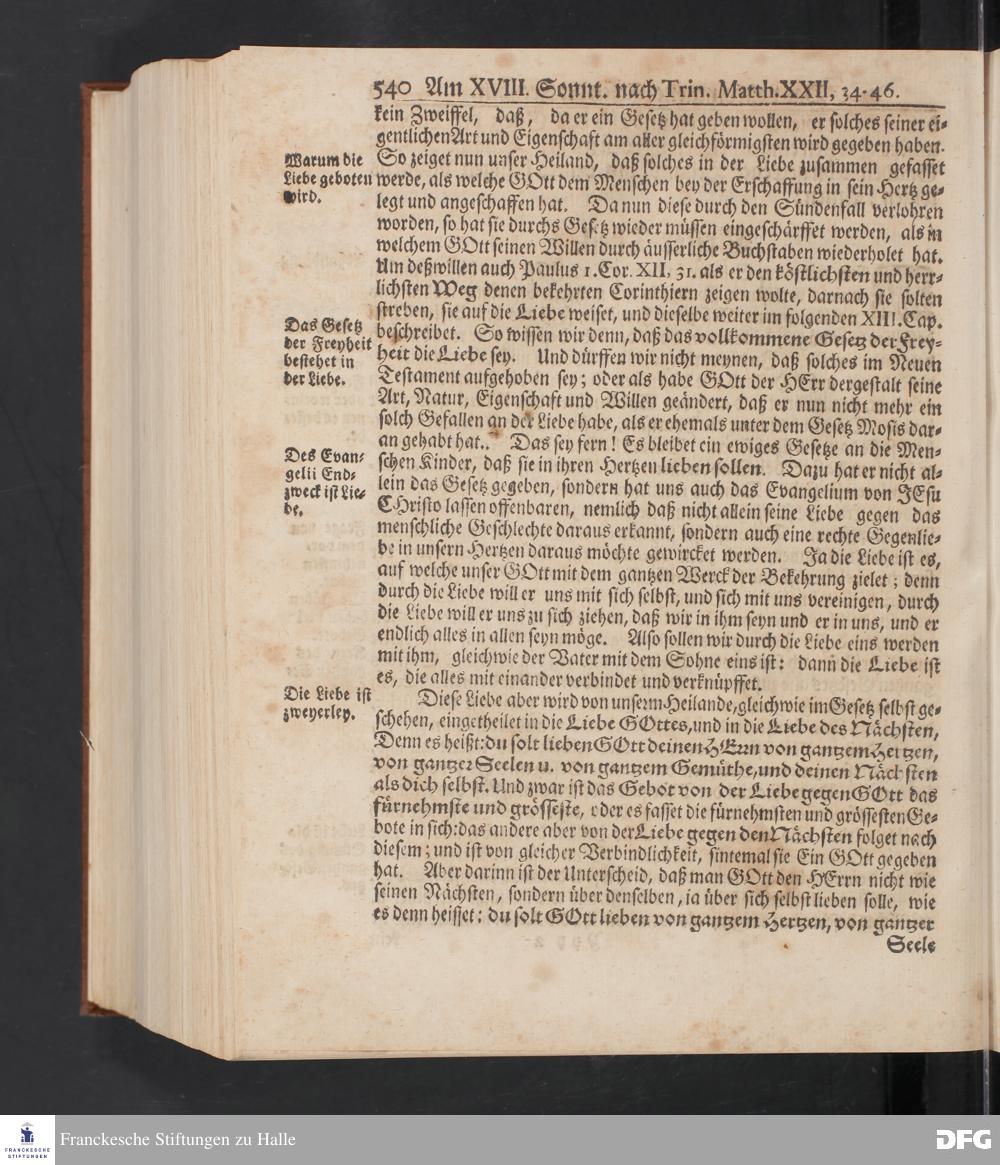 540 Am XVIII. Sonnt. nach Trin. Matth. XXII, 34-46.
kein Zweiffel, daß, da er ein Gesetz hat geben wollen, er solches seiner ei-
gentlichen Art und Eigenschaft am aller gleichförmigsten wird gegeben haben.
Warum die
Liebe geboten
wird.
So zeiget nun unser Heiland, daß solches in der Liebe zusammen gefasset
werde, als welche GOtt dem Menschen bey der Erschaffung in sein Hertz ge-
legt und angeschaffen hat. Da nun diese durch den Sündenfall verlohren
worden, so hat sie durchs Gesetz wieder müssen eingeschärffet werden, als in
welchem GOtt seinen Willen durch äusserliche Buchstaben wiederholet hat.
Um deßwillen auch Paulus 1. Cor. XII, 31. als er den köstlichsten und herr-
lichsten Weg denen bekehrten Corinthiern zeigen wolte, darnach sie solten
streben, sie auf die Liebe weiset, und dieselbe weiter im folgenden XIII. Cap.
Das Gesetz
der Freyheit
bestehet in
der Liebe.
beschreibet. So wissen wir denn, daß das vollkommene Gesetz der Frey-
heit die Liebe sey. Und dürffen wir nicht meynen, daß solches im Neuen
Testament aufgehoben sey; oder als habe GOtt der HErr dergestalt seine
Art, Natur, Eigenschaft und Willen geändert, daß er nun nicht mehr ein
solch Gefallen an der Liebe habe, als er ehemals unter dem Gesetz Mosis dar-
an gehabt hat. Das sey fern! Es bleibet ein ewiges Gesetze an die Men-
Des Evan-
gelii End-
zweck ist Lie-
be.
schen Kinder, daß sie in ihren Hertzen lieben sollen. Dazu hat er nicht al-
lein das Gesetz gegeben, sondern hat uns auch das Evangelium von JEsu
CHristo lassen offenbaren, nemlich daß nicht allein seine Liebe gegen das
menschliche Geschlechte daraus erkannt, sondern auch eine rechte Gegenlie-
be in unsern Hertzen daraus möchte gewircket werden. Ja die Liebe ist es,
auf welche unser GOtt mit dem gantzen Werck der Bekehrung zielet; denn
durch die Liebe will er uns mit sich selbst, und sich mit uns vereinigen, durch
die Liebe will er uns zu sich ziehen, daß wir in ihm seyn und er in uns, und er
endlich alles in allen seyn möge. Also sollen wir durch die Liebe eins werden
mit ihm, gleichwie der Vater mit dem Sohne eins ist: dann die Liebe ist
es, die alles mit einander verbindet und verknüpffet.
Die Liebe ist
zweyerley.
Diese Liebe aber wird von unserm Heilande, gleichwie im Gesetz selbst ge-
schehen, eingetheilet in die Liebe GOttes, und in die Liebe des Nächsten,
Denn es heißt: du solt lieben GOtt deinen HErrn von gantzem Hertzen,
von gantzer Seelen u. von gantzem Gemüthe, und deinen Nächsten
als dich selbst. Und zwar ist das Gebot von der Liebe gegen GOtt das
fürnehmste und grösseste, oder es fasset die fürnehmsten und grössesten Ge-
bote in sich: das andere aber von der Liebe gegen den Nächsten folget nach
diesem; und ist von gleicher Verbindlichkeit, sintemal sie Ein GOtt gegeben
hat. Aber darinn ist der Unterscheid, daß man GOtt den HErrn nicht wie
seinen Nächsten, sondern über denselben, ja über sich selbst lieben solle, wie
es denn heisset: du solt GOtt lieben von gantzem Hertzen, von gantzer
Seele
FRANCKESCHE
STIFTUNGEN
Franckesche Stiftungen zu Halle
DFG